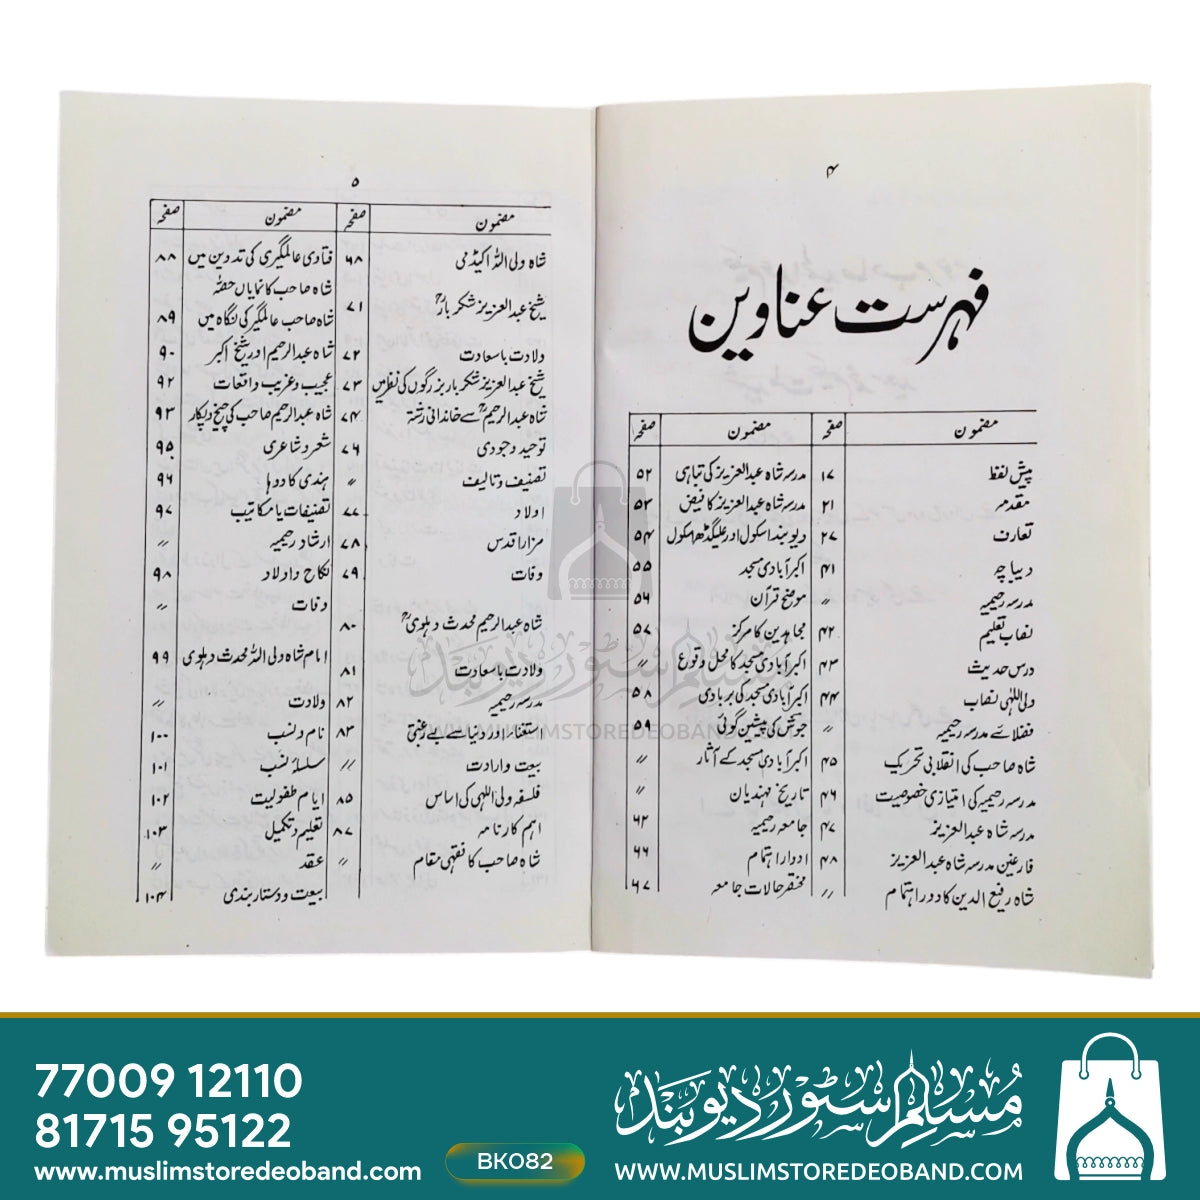 ۴
فہرست عناوین
مضمون صفحہ مضمون صفحہ
پیش لفظ ۱۷ مدرسہ شاہ عبدالعزیز کی تباہی ۵۲
مقدمہ ۲۱ مدرسہ شاہ عبدالعزیز کا فیض ۵۳
تعارف ۲۷ دیوبند اسکول اور علیگڈھ اسکول ۵۴
دیباچہ ۴۱ اکبر آبادی مسجد ۵۵
مدرسہ رحیمیہ 〃 موضح قرآن ۵۶
نصاب تعلیم ۴۲ مجاہدین کا مرکز ۵۷
درس حدیث ۴۳ اکبر آبادی مسجد کا محل وقوع 〃
ولی اللہی نصاب ۴۴ اکبر آبادی مسجد کی بربادی ۵۸
فضلائے مدرسہ رحیمیہ 〃 جوتش کی پیشین گوئی ۵۹
شاہ صاحب کی انقلابی تحریک ۴۵ اکبر آبادی مسجد کے آثار 〃
مدرسہ رحیمیہ کی امتیازی خصوصیت ۴۶ تاریخ مہندیان 〃
مدرسہ شاہ عبدالعزیز ۴۷ جامعہ رحیمیہ ۶۲
فارغین مدرسہ شاہ عبدالعزیز ۴۸ ادوار اہتمام ۶۶
شاہ رفیع الدین کا دور اہتمام 〃 مختصر حالات جامعہ ۶۷
۵
مضمون صفحہ مضمون صفحہ
شاہ ولی اللہ اکیڈمی ۶۸ فتاوی عالمگیری کی تدوین میں ۸۸
شاہ صاحب کا نمایاں حصہ
شیخ عبدالعزیز شکر بارؒ ۷۱ شاہ صاحب عالمگیر کی نگاہ میں ۸۹
ولادت باسعادت ۷۲ شاہ عبدالرحیم اور شیخ اکبر ۹۰
شیخ عبدالعزیز شکر بار بزرگوں کی نظر میں ۷۳ عجیب و غریب واقعات ۹۲
شاہ عبدالرحیمؒ سے خاندانی رشتہ ۷۴ شاہ عبدالرحیم صاحب کی چیخ و پکار ۹۳
توحید وجودی ۷۶ شعر و شاعری ۹۵
تصنیف و تالیف 〃 ہندی کا دوہا ۹۶
اولاد ۷۷ تصنیفات یا مکاتیب ۹۷
مزار اقدس ۷۸ ارشاد رحیمیہ 〃
وفات ۷۹ نکاح و اولاد ۹۸
وفات 〃
شاہ عبدالرحیم محدث دہلویؒ ۸۰
امام شاہ ولی اللہ محدث دہلوی ۹۹
ولادت باسعادت ۸۱
مدرسہ رحیمیہ ۸۲ ولادت 〃
استغناء اور دنیا سے بے رغبتی ۸۳ نام و نسب ۱۰۰
بیعت و ارادت 〃 سلسلۂ نسب ۱۰۱
فلسفہ ولی اللہی کی اساس ۸۵ ایام طفولیت ۱۰۲
اہم کارنامہ ۸۷ تعلیم و تکمیل ۱۰۳
شاہ صاحب کا فقہی مقام 〃 عقد 〃
بیعت و دستار بندی ۱۰۴
مسلم سٹور دیوبند
WWW.MUSLIMSTOREDEOBAND.COM
77009 12110
81715 95122
www.muslimstoredeoband.com
BK082
مسلم سٹور دیوبند
WWW.MUSLIMSTOREDEOBAND.COM